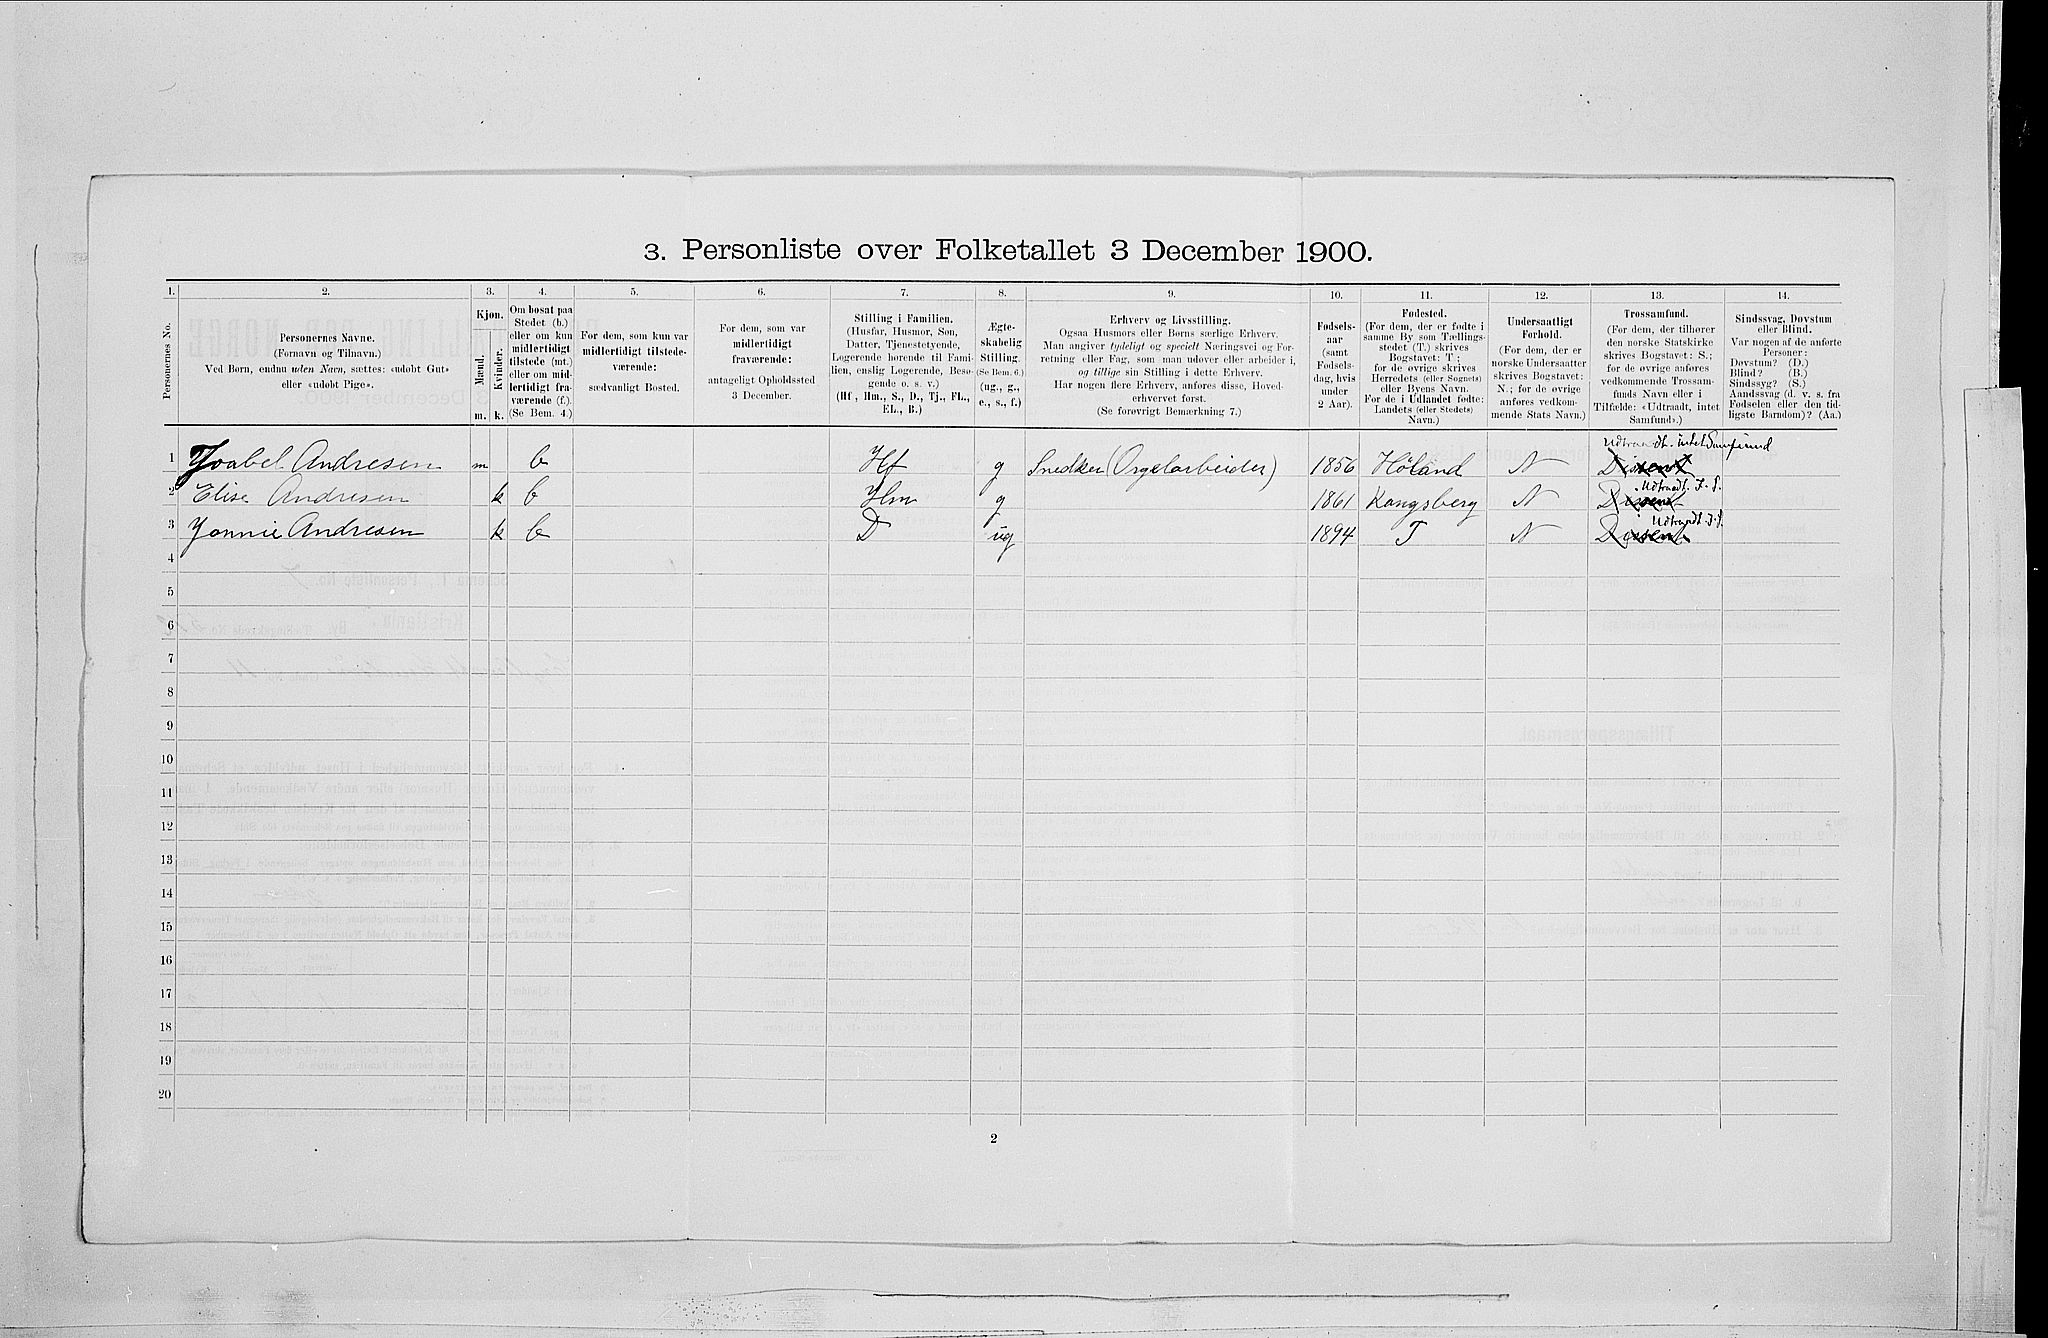 3. Personliste over Folketallet 3 December 1900.
1. 2. 3. 4. 5. 6. 7. 8. 9. 10. 11. 12. 13. 14.
Personernes No.
Personernes Navne.
(Fornavn og Tilnavn.)
Ved Børn, endnu uden Navn, sættes: «udøbt Gut»
eller «udøbt Pige».
Kjøn.
Mænd.
Kvinder.
m. k.
Om bosat paa
Stedet (b.)
eller om kun
midlertidigt
tilstede (mt.)
eller om mid-
lertidigt fra-
værende (f.).
(Se Bem. 4.)
For dem, som kun var
midlertidigt tilstede-
værende:
sædvanligt Bosted.
For dem, som var
midlertidigt
fraværende:
antageligt Opholdssted
3 December.
Stilling i Familien.
(Husfar, Husmor, Søn,
Datter, Tjenestetyende,
Logerende hørende til Fami-
lien, enslig Logerende, Besø-
gende o. s. v.)
(Hf, Hm., S., D., Tj., FL.,
EL., B.)
Ægte-
skabelig
Stilling.
(Se Bem. 6.)
(ug., g.,
e., s., f.)
Erhverv og Livsstilling.
Ogsaa Husmors eller Børns særlige Erhverv.
Man angiver tydeligt og specielt Næringsvei og For-
retning eller Fag, som man udøver eller arbeider i,
og tillige sin Stilling i dette Erhverv.
Har nogen flere Erhverv, anføres disse, Hoved-
erhvervet først.
(Se forøvrigt Bemærkning 7.)
Fødsels-
aar
(samt
Fødsels-
dag, hvis
under
2 Aar).
Fødested.
(For dem, der er fødte i
samme By som Tællings-
stedet (T.) skrives
Bogstavet: T;
for de øvrige skrives
Herredets (eller Sognets)
eller Byens Navn.
For de i Udlandet fødte:
Landets (eller Stedets)
Navn.)
Undersaatligt
Forhold.
(For dem, der er
norske Undersaatter
skrives Bogstavet:
N.; for de øvrige
anføres vedkom-
mende Stats Navn.)
Trossamfund.
(For dem, der tilhører
den norske Statskirke
skrives Bogstavet: S.;
for de øvrige anføres
vedkommende Trossam-
funds Navn eller i
Tilfælde: «Udtraadt, intet
Samfund».)
Sindssvag, Døvstum
eller Blind.
Var nogen af de anførte
Personer:
Døvstum? (D.)
Blind? (B.)
Sindssyg? (S.)
Aandssvag (d. v. s. fra
Fødselen eller den tid-
ligste Barndom)? (Aa.)
Udtraadt. intet Samfund
1 Andresen m b Hf g Snedker (Orgelarbeider) 1856 Høland N Dissent
Udtraadt. I. S.
2 Elise Andresen k b Hm g 1861 Kongsberg N Dissent
Udtraadt. I. S.
3 Jonnie Andresen k b D ug 1894 T N Dissent
4
5
6
7
8
9
10
11
12
13
14
15
16
17
18
19
20
2